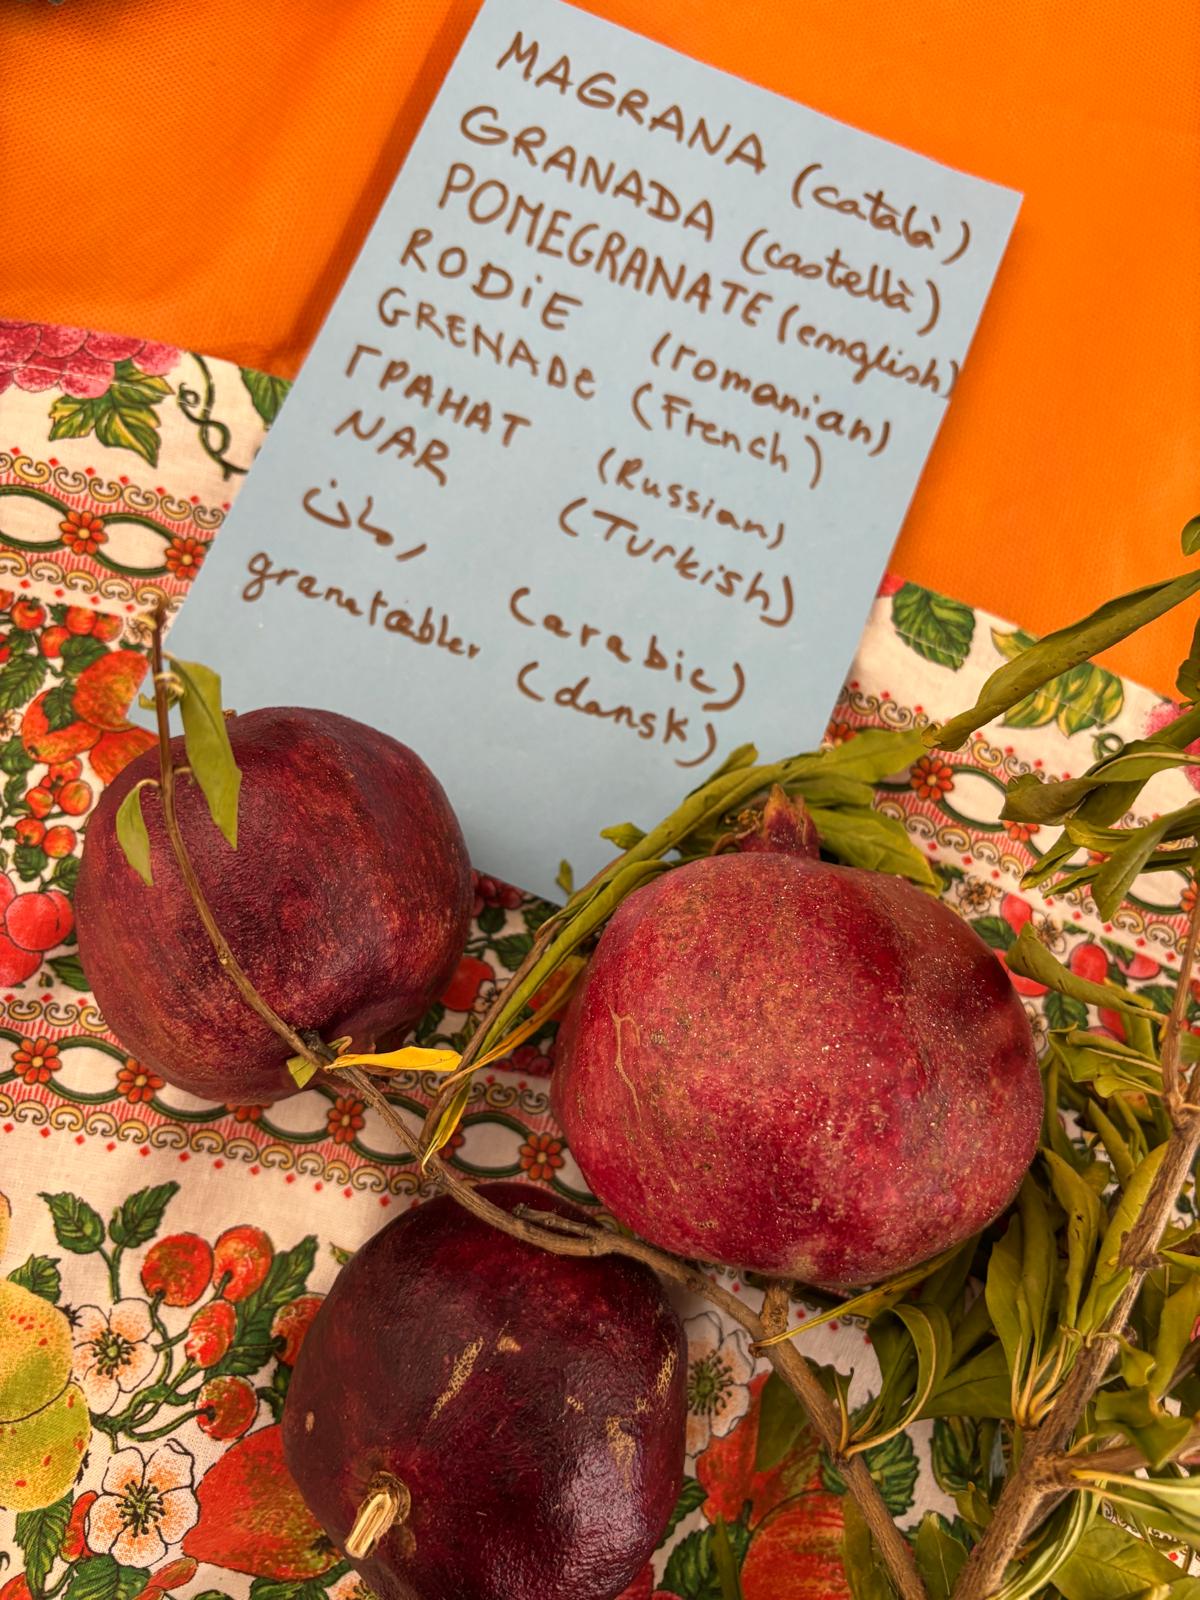 MAGRANA (català)
GRANADA (castellà)
POMEGRANATE (english)
RODiE (romanian)
GRENADE (French)
ГРАНАТ (Russian)
NAR (Turkish)
رمان (arabic)
granatæbler (dansk)